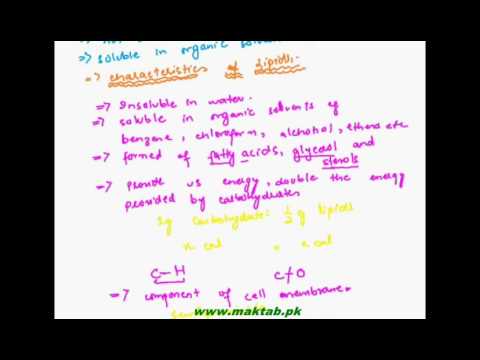 => soluble in organic
=> characteristics of Lipids.
=> Insoluble in water.
=> soluble in organic solvents of
benzene, chloroform, alchohol, ethers etc
=> formed of fatty acids, glycerol and
sterols
=> Provide us energy, double the energy
provided by carbohydrates
1g carbohydrate: 1/2 g lipids
x cal = x cal
C-H C/O
=> component of cell membrane.
www.maktab.pk